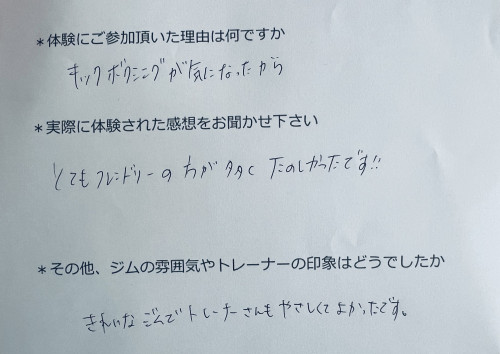 ＊体験にご参加頂いた理由は何ですか
キックボクシングが気になったから
＊実際に体験された感想をお聞かせ下さい
とてもフレンドリーの方が多くたのしかったです!!
＊その他、ジムの雰囲気やトレーナーの印象はどうでしたか
きれいなジムでトレーナーさんもやさしくてよかったです。